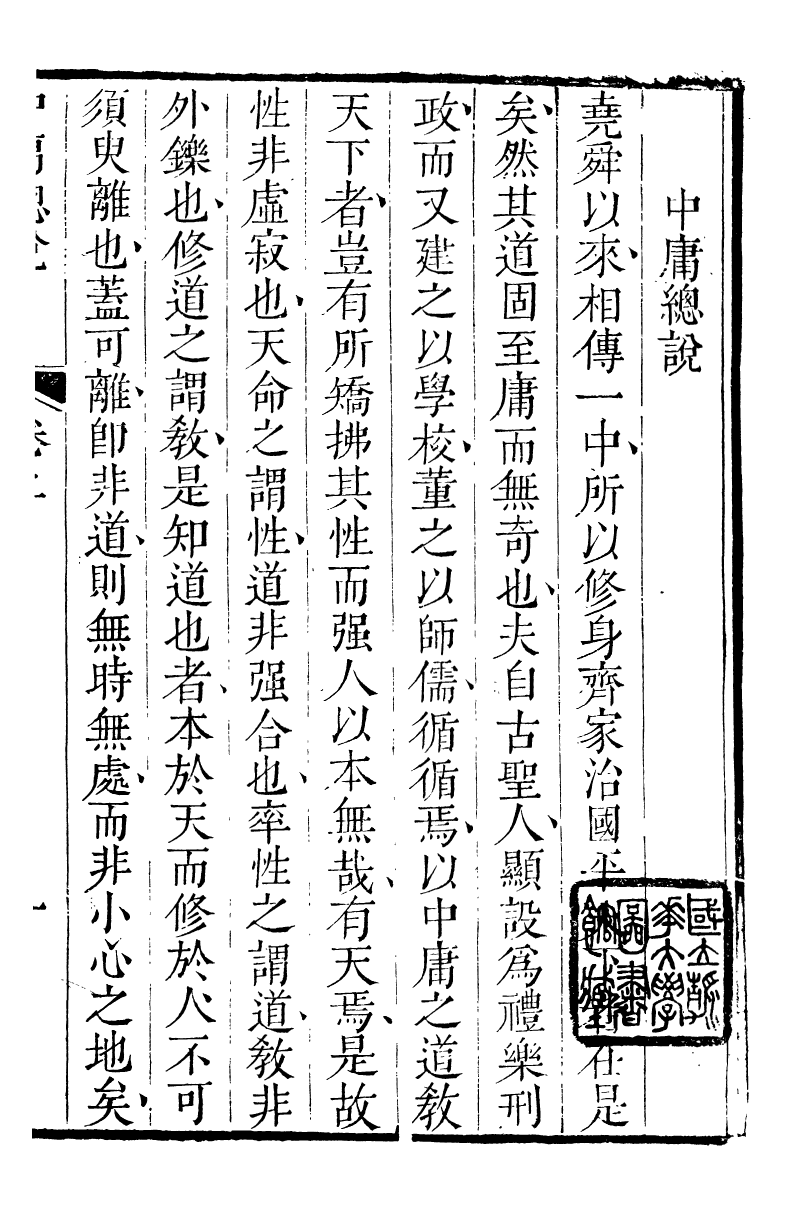 中庸總說
堯舜以來相傳一中所以修身齊家治國平在是
矣然其道固至庸而無奇也夫自古聖人顯設爲禮樂刑
政而又建之以學校董之以師儒循循焉以中庸之道敎
天下者豈有所矯拂其性而强人以本無哉有天焉是故
性非虛寂也天命之謂性道非强合也率性之謂道敎非
外鑠也修道之謂敎是知道也者本於天而修於人不可
須臾離也蓋可離卽非道則無時無處而非小心之地矣
中庸總說
卷之
一
國立清華大學圖書館藏